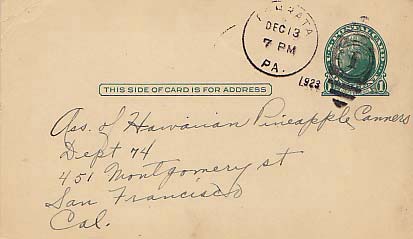 EPHRATA
DEC 13
7 PM
1923
PA.
THIS SIDE OF CARD IS FOR ADDRESS
1
Ass. of Hawaiian Pineapple Canners
Dept 74
451 Montgomery st
San Francisco
Cal.